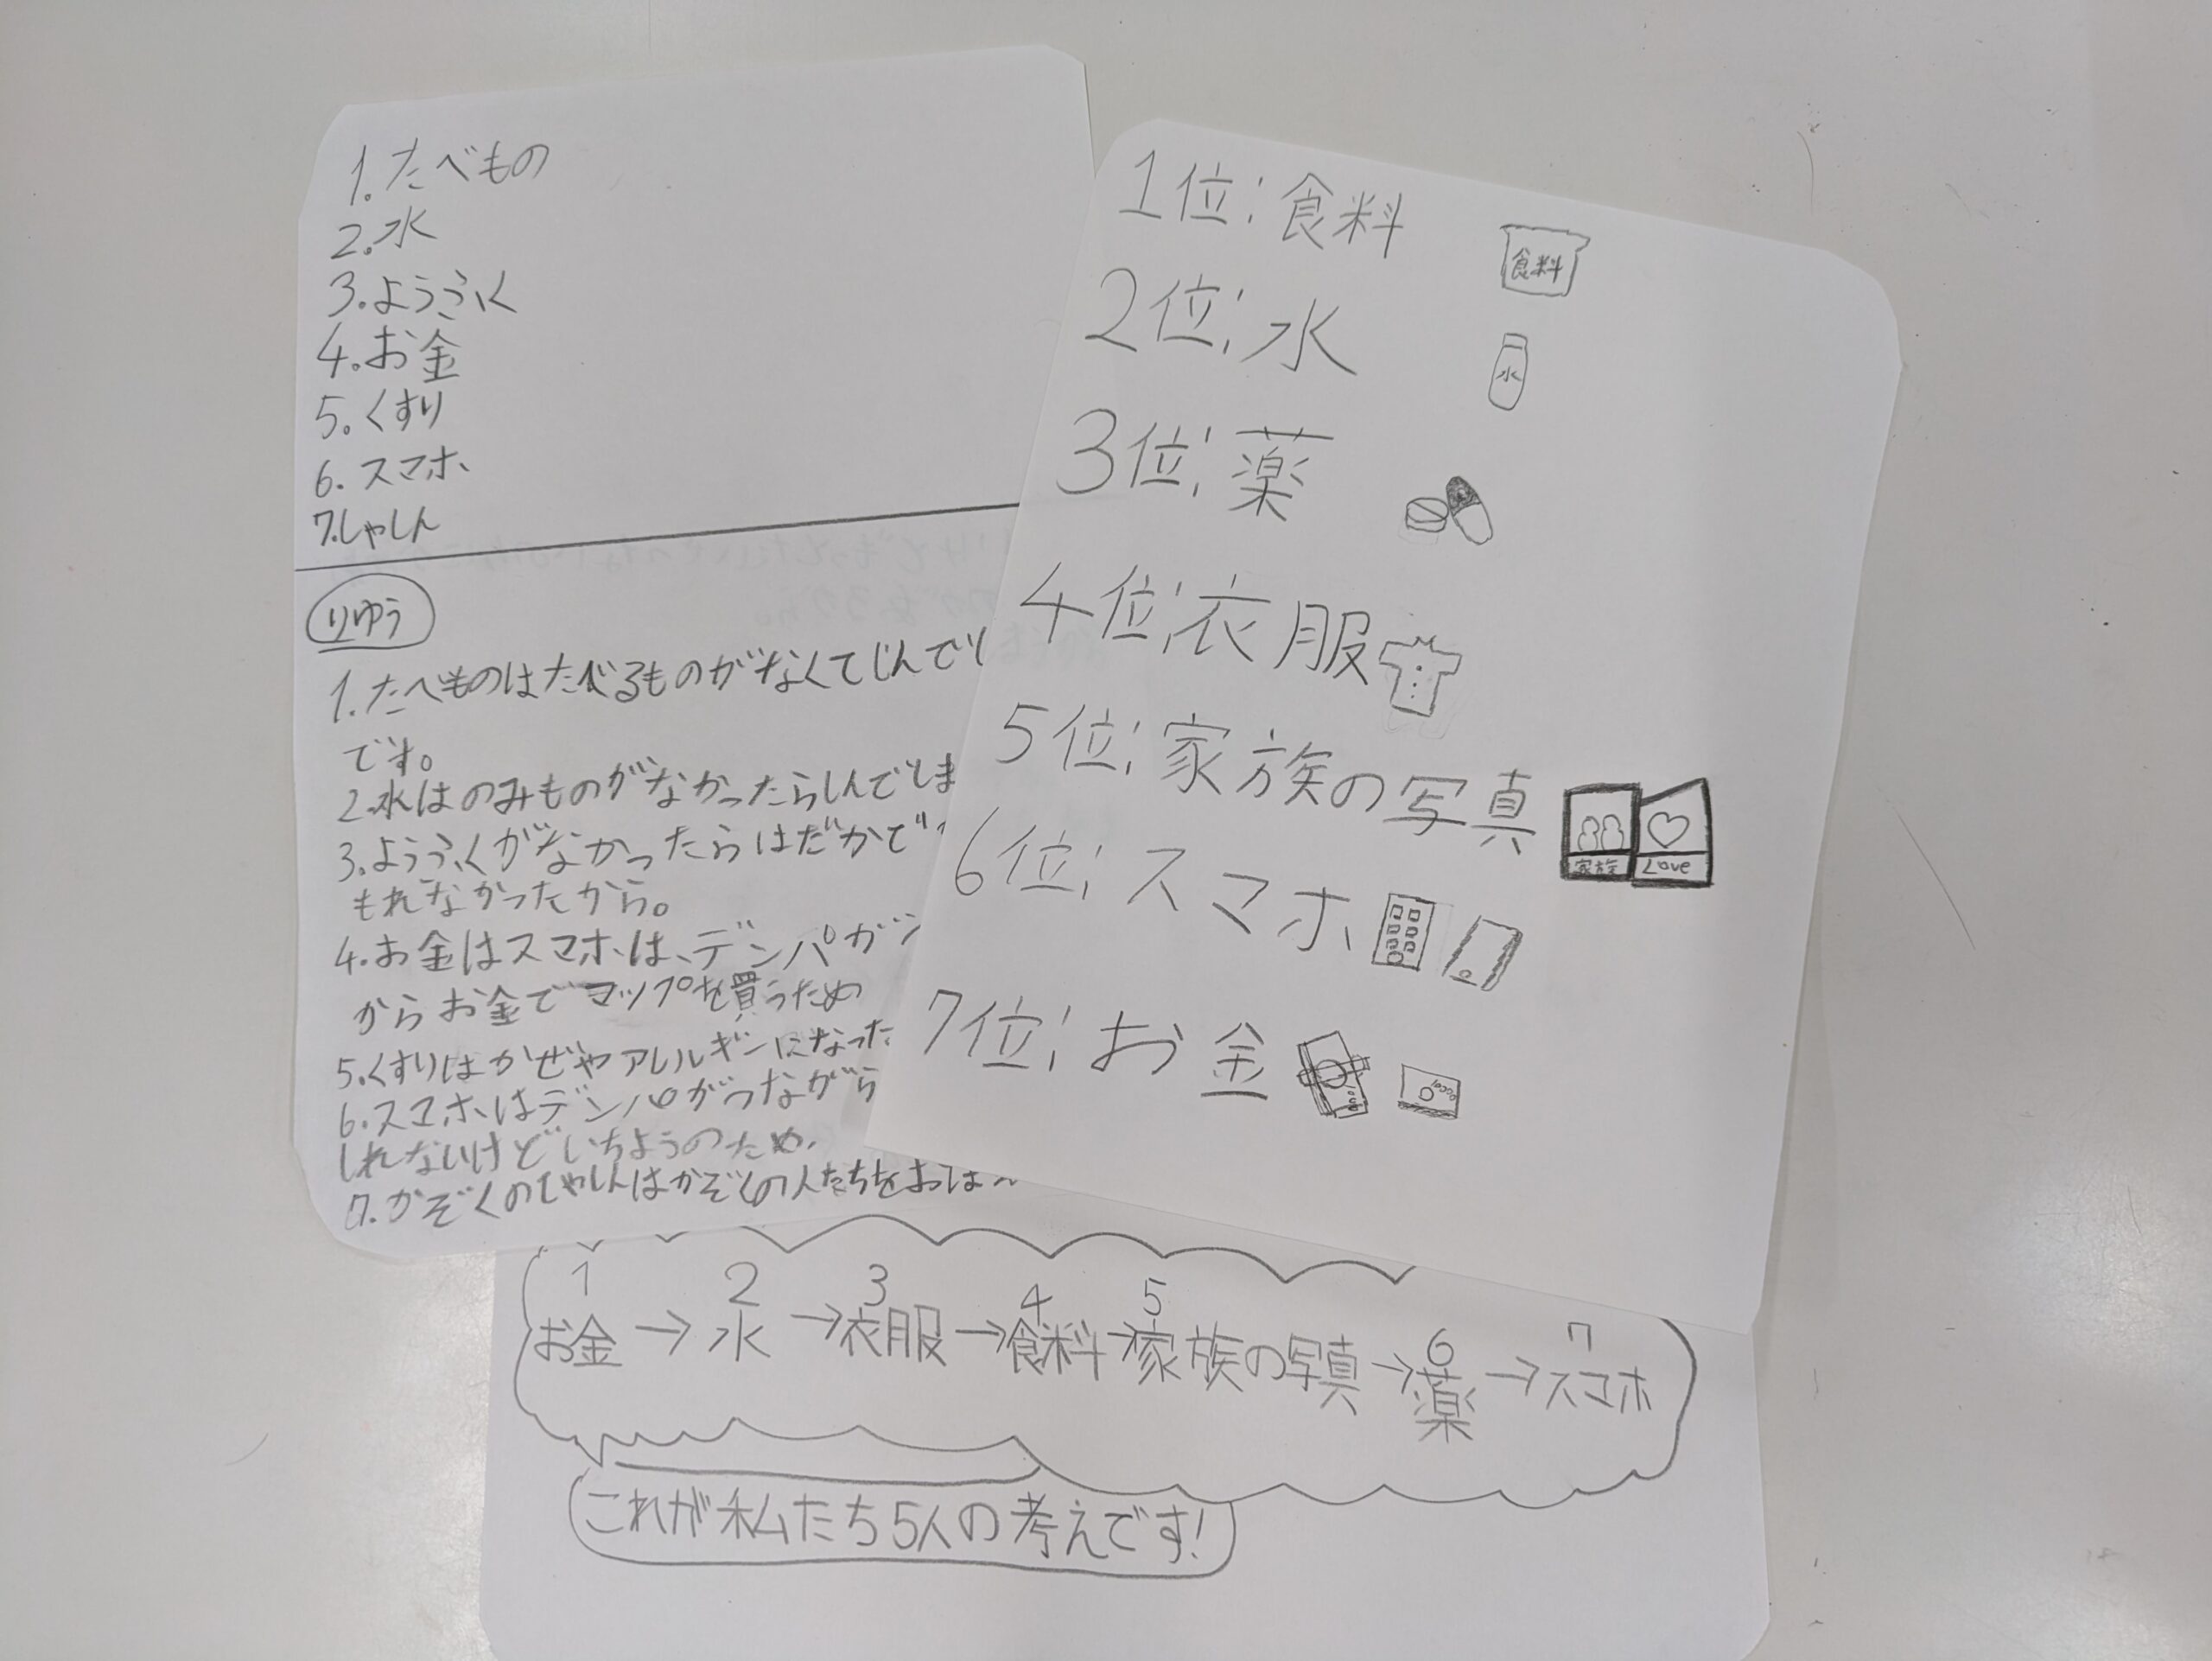 1.たべもの
2.水
3.ようふく
4.お金
5.くすり
6.スマホ
7.しゃしん
りゆう
1.たべものはたべるものがなくてじんで
です。
2.水はのみものがなかったらしんでしま
3.ようふくがなかったらはだかで
もれなかったから。
4.お金はスマホは、デンパが
からお金でマップを買うため
5.くすりはかぜやアレルギーになった
6.スマホはデンパがつながら
しれないけどいちようのため
7.かぞくのしゃしんはかぞくの人たちをお
1位;食料
食料
2位;水
水
3位;薬
4位;衣服
5位;家族の写真
家族 Love
6位;スマホ
7位;お金
1 2 3 4 5 6 7
お金→水→衣服→食料→家族の写真→薬→スマホ
これが私たち5人の考えです!